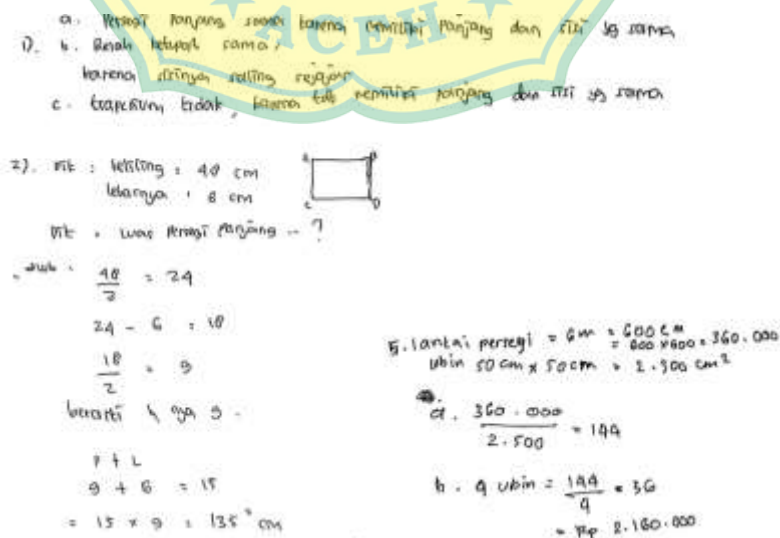 ACEH
a. Persegi panjang sama karena memiliki panjang dan sisi yg sama
1). b. Belah ketupat sama,
karena sisinya saling sejajar
c. trapesium tidak, karena tdk memiliki panjang dan sisi yg sama
2). Dik : keliling = 48 cm
lebarnya : 6 cm
A B
C D
Dit : Luas persegi panjang .. ?
Jwb :
48/2 = 24
24 - 6 = 18
18/2 = 9
berarti nya 9.
P + L
9 + 6 = 15
= 15 x 9 = 135 cm
5. lantai persegi = 6m = 600 cm
= 600 x 600 = 360.000
ubin 50 cm x 50 cm = 2.500 cm²
a. 360.000/2.500 = 144
b. 4 ubin = 144/4 = 36
= Rp 2.160.000